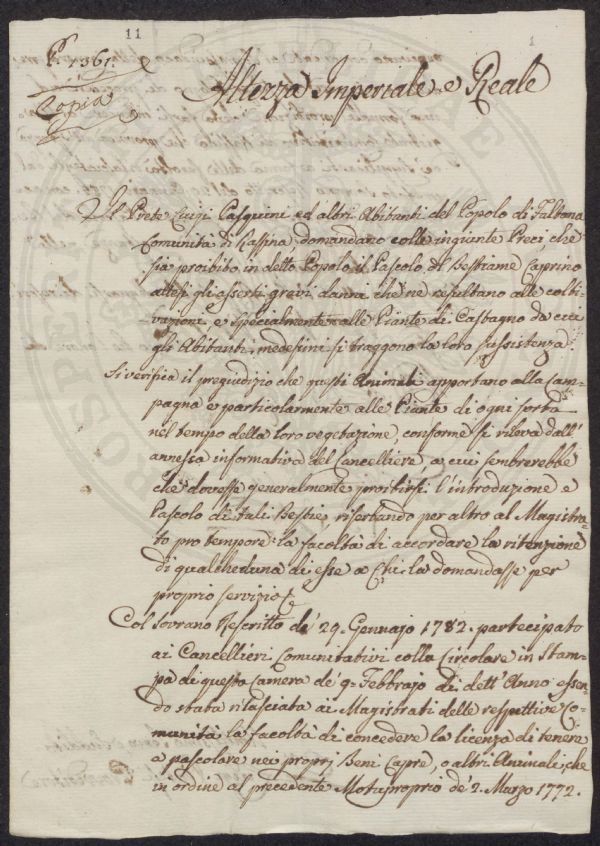 11
1
P. 1361.
Copia
Altezza Imperiale e Reale
Il Prete Luigi Pasquini ed altri Abitanti del Popolo di Falbana
Comunità di Cassina domandano colle ingiunte Preci che
sia proibito in detto Popolo il Pascolo del Bestiame Caprino
attesi gli asserti grevi danni che ne resultano alle colti-
vazioni, e specialmente alle Piante di Castagno da cui
gli Abitanti medesimi si traggono la loro sussistenza.
Si verifica il pregiudizio che questi Animali apportano alla cam-
pagna e particolarmente alle Piante di ogni sorta
nel tempo della loro vegetazione, conforme si rileva dall'
annessa informativa del Cancelliere, a cui sembrerebbe
che dovesse generalmente proibirsi l'introduzione e
Pascolo di tali Bestie, riserbando per altro al Magistra-
to pro tempore la facoltà di accordare la ritenzione
di qualcheduna di esse a chi la domandasse per
proprio servizio.
Col Sovrano Rescritto de' 29. Gennajo 1782. partecipato
ai Cancellieri Comunitativi colla Circolare in Stam-
pa di questa Camera de' 9. Febbrajo di dett' Anno essen-
do stata rilasciata ai Magistrati delle respettive Co-
munità la facoltà di concedere la licenza di tenere
a pascolare nei proprj Beni Capre, o altri Animali, che
in ordine al precedente Motuproprio de' 2. Marzo 1772.